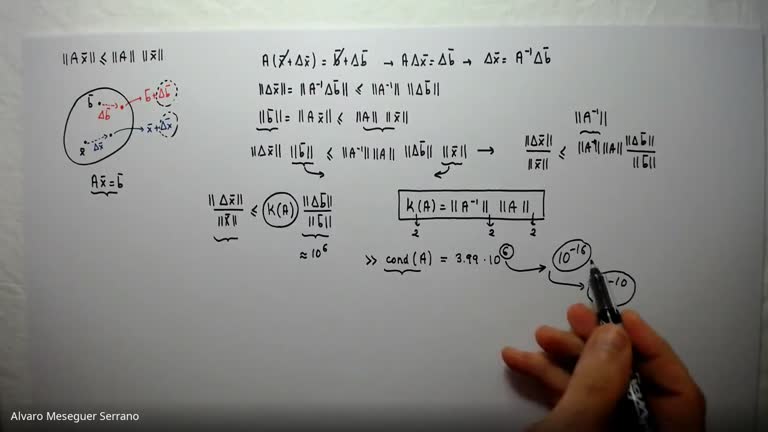 ||A x̄|| ≤ ||A|| ||x̄||
b̄
Δb̄
b̄+Δb̄
x̄
Δx̄
x̄+Δx̄
A x̄ = b̄
A(x̄+Δx̄) = b̄+Δb̄ → AΔx̄ = Δb̄ → Δx̄ = A⁻¹Δb̄
||Δx̄|| = ||A⁻¹Δb̄|| ≤ ||A⁻¹|| ||Δb̄||
||b̄|| = ||A x̄|| ≤ ||A|| ||x̄||
||A⁻¹||
||Δx̄|| ||b̄|| ≤ ||A⁻¹|| ||A|| ||Δb̄|| ||x̄|| → ||Δx̄|| / ||x̄|| ≤ ||A|| ||A|| ||Δb̄|| / ||b̄||
||Δx̄|| / ||x̄|| ≤ K(A) ||Δb̄|| / ||b̄||
≈ 10⁶
K(A) = ||A⁻¹|| ||A||
2 2 2
>> cond(A) = 3.99·10⁶
10⁻¹⁶
⁻¹⁰
Alvaro Meseguer Serrano